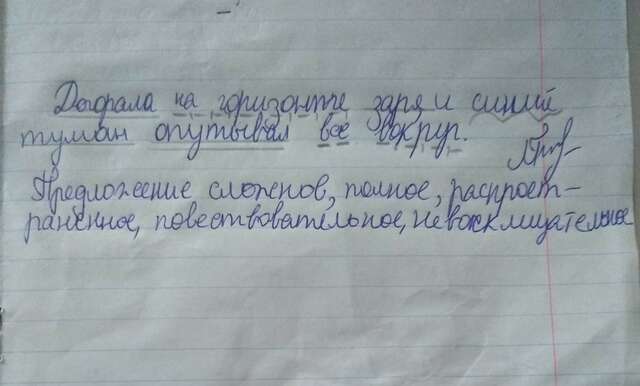 Догорала на горизонте заря и синий
туман опутывал все вокруг.
Предложение сложное, полное, распрост-
раненное, повествовательное, невосклицательное